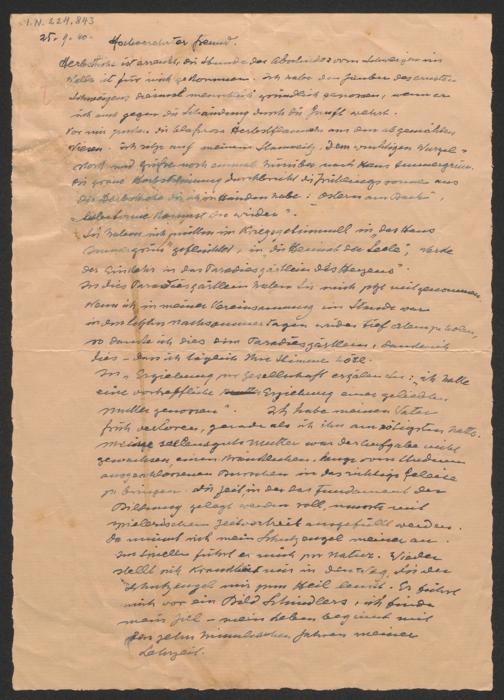 I.N. 224.843
25.-9.40. Hochverehrter Freund.
ist erreicht, die Stunde des Abschiedes vom Schweigen im
Walde ist für mich gekommen. Ich habe den Zauber des ernsten
Schweigens diesmal gründlich genossen, wenn er
ich aus gegen die Schändung durch die
Vor mir die Herbstflammen aus den abgemähten
Wiesen. Ich sitze auf meinem dem wuchtigen Wurzel=
stock und grüße noch einmal hinüber nach Haus Immergrün.
Die graue Herbststimmung durchbricht die Frühlingssonne aus
die ich in Händen habe: Ostern am
kommst Du wieder".
Sie haben sich mitten im in "das Haus
Immergrün" geflüchtet, in "die Heimat der Seele",
der Einkehr in das Paradiesgärtlein des Herzens".
In dies Paradiesgärtlein haben Sie mich jetzt mitgenommen.
Wenn ich in meiner Vereinsamung im Stande war
in den letzten Nachsommer Tagen wieder tief Atem zu holen,
so danke ich dies dem Paradiesgärtlein,
dies - dass ich täglich Ihre Stimme höre.
In "Erziehung zur Gesellschaft" erzählen Sie: "ich hatte
eine vortreffliche Erziehung einer geliebten
Mutter genossen". Ich habe meinen Vater
früh verloren, gerade als ich ihn am nötigsten hatte.
Meine seelensgute Mutter war der Aufgabe nicht
gewachsen, einen kränklichen, lange vom Studium
ausgeschlossenen Burschen in das richtige Geleise
zu bringen. Die Zeit in der das Fundament der
Bildung gelegt werden soll, musste mit
spielerischem Zeitvertreib ausgefüllt werden.
Da nimmt sich mein Schutzengel meiner an.
Im Spielen führt er mich zur Natur. Wieder
stellt sich Krankheit mir in den Weg, die der
Schutzengel mir zum Heil lenkt. Er führt
mich vor ein Bild Schindlers, ich finde
mein Ziel - mein Leben beginnt mit
den zehn himmlischen Jahren meiner
Lehrzeit.